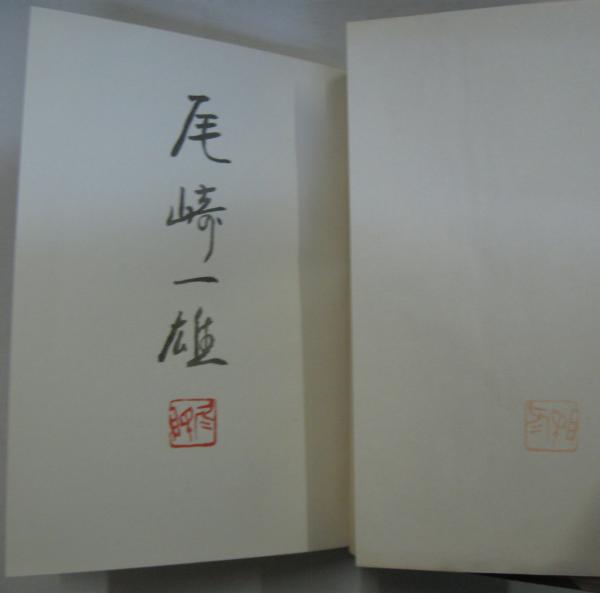 尾崎一雄